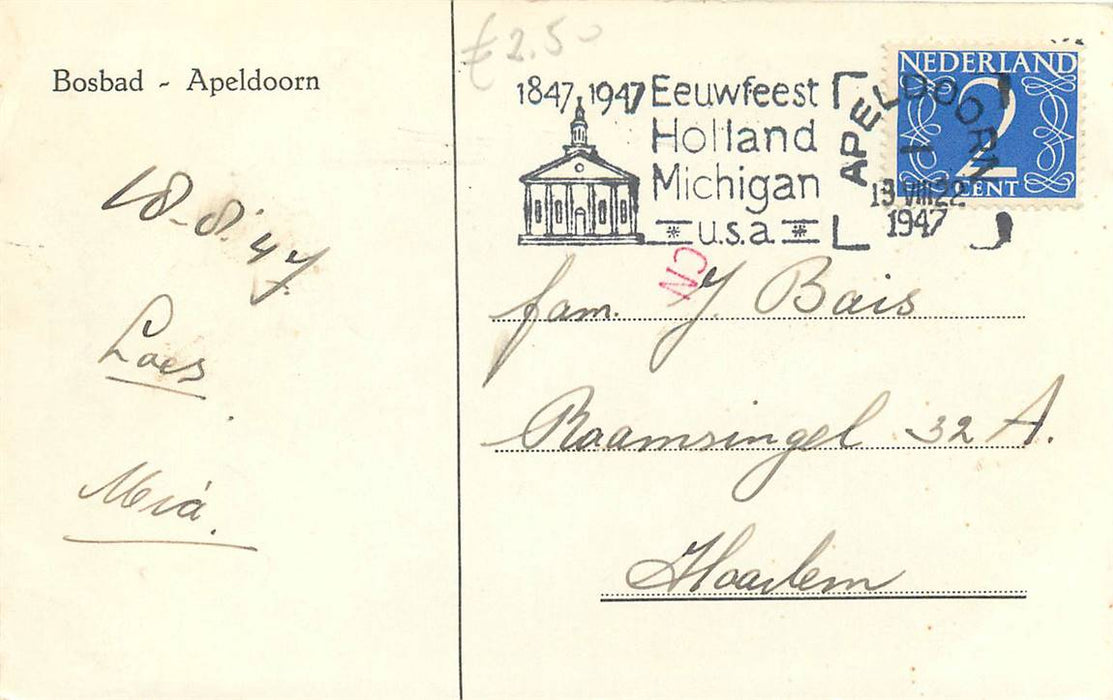 Bosbad - Apeldoorn
18-8.'47
Loes
.
Mia.
€ 2.50
1847 1947 Eeuwfeest
Holland
Michigan
* u.s.a *
APELDOORN
1
19 VIII 22
1947
NEDERLAND
2
CENT
CN
fam. J. Bais
Raamsingel 32 A.
Haarlem